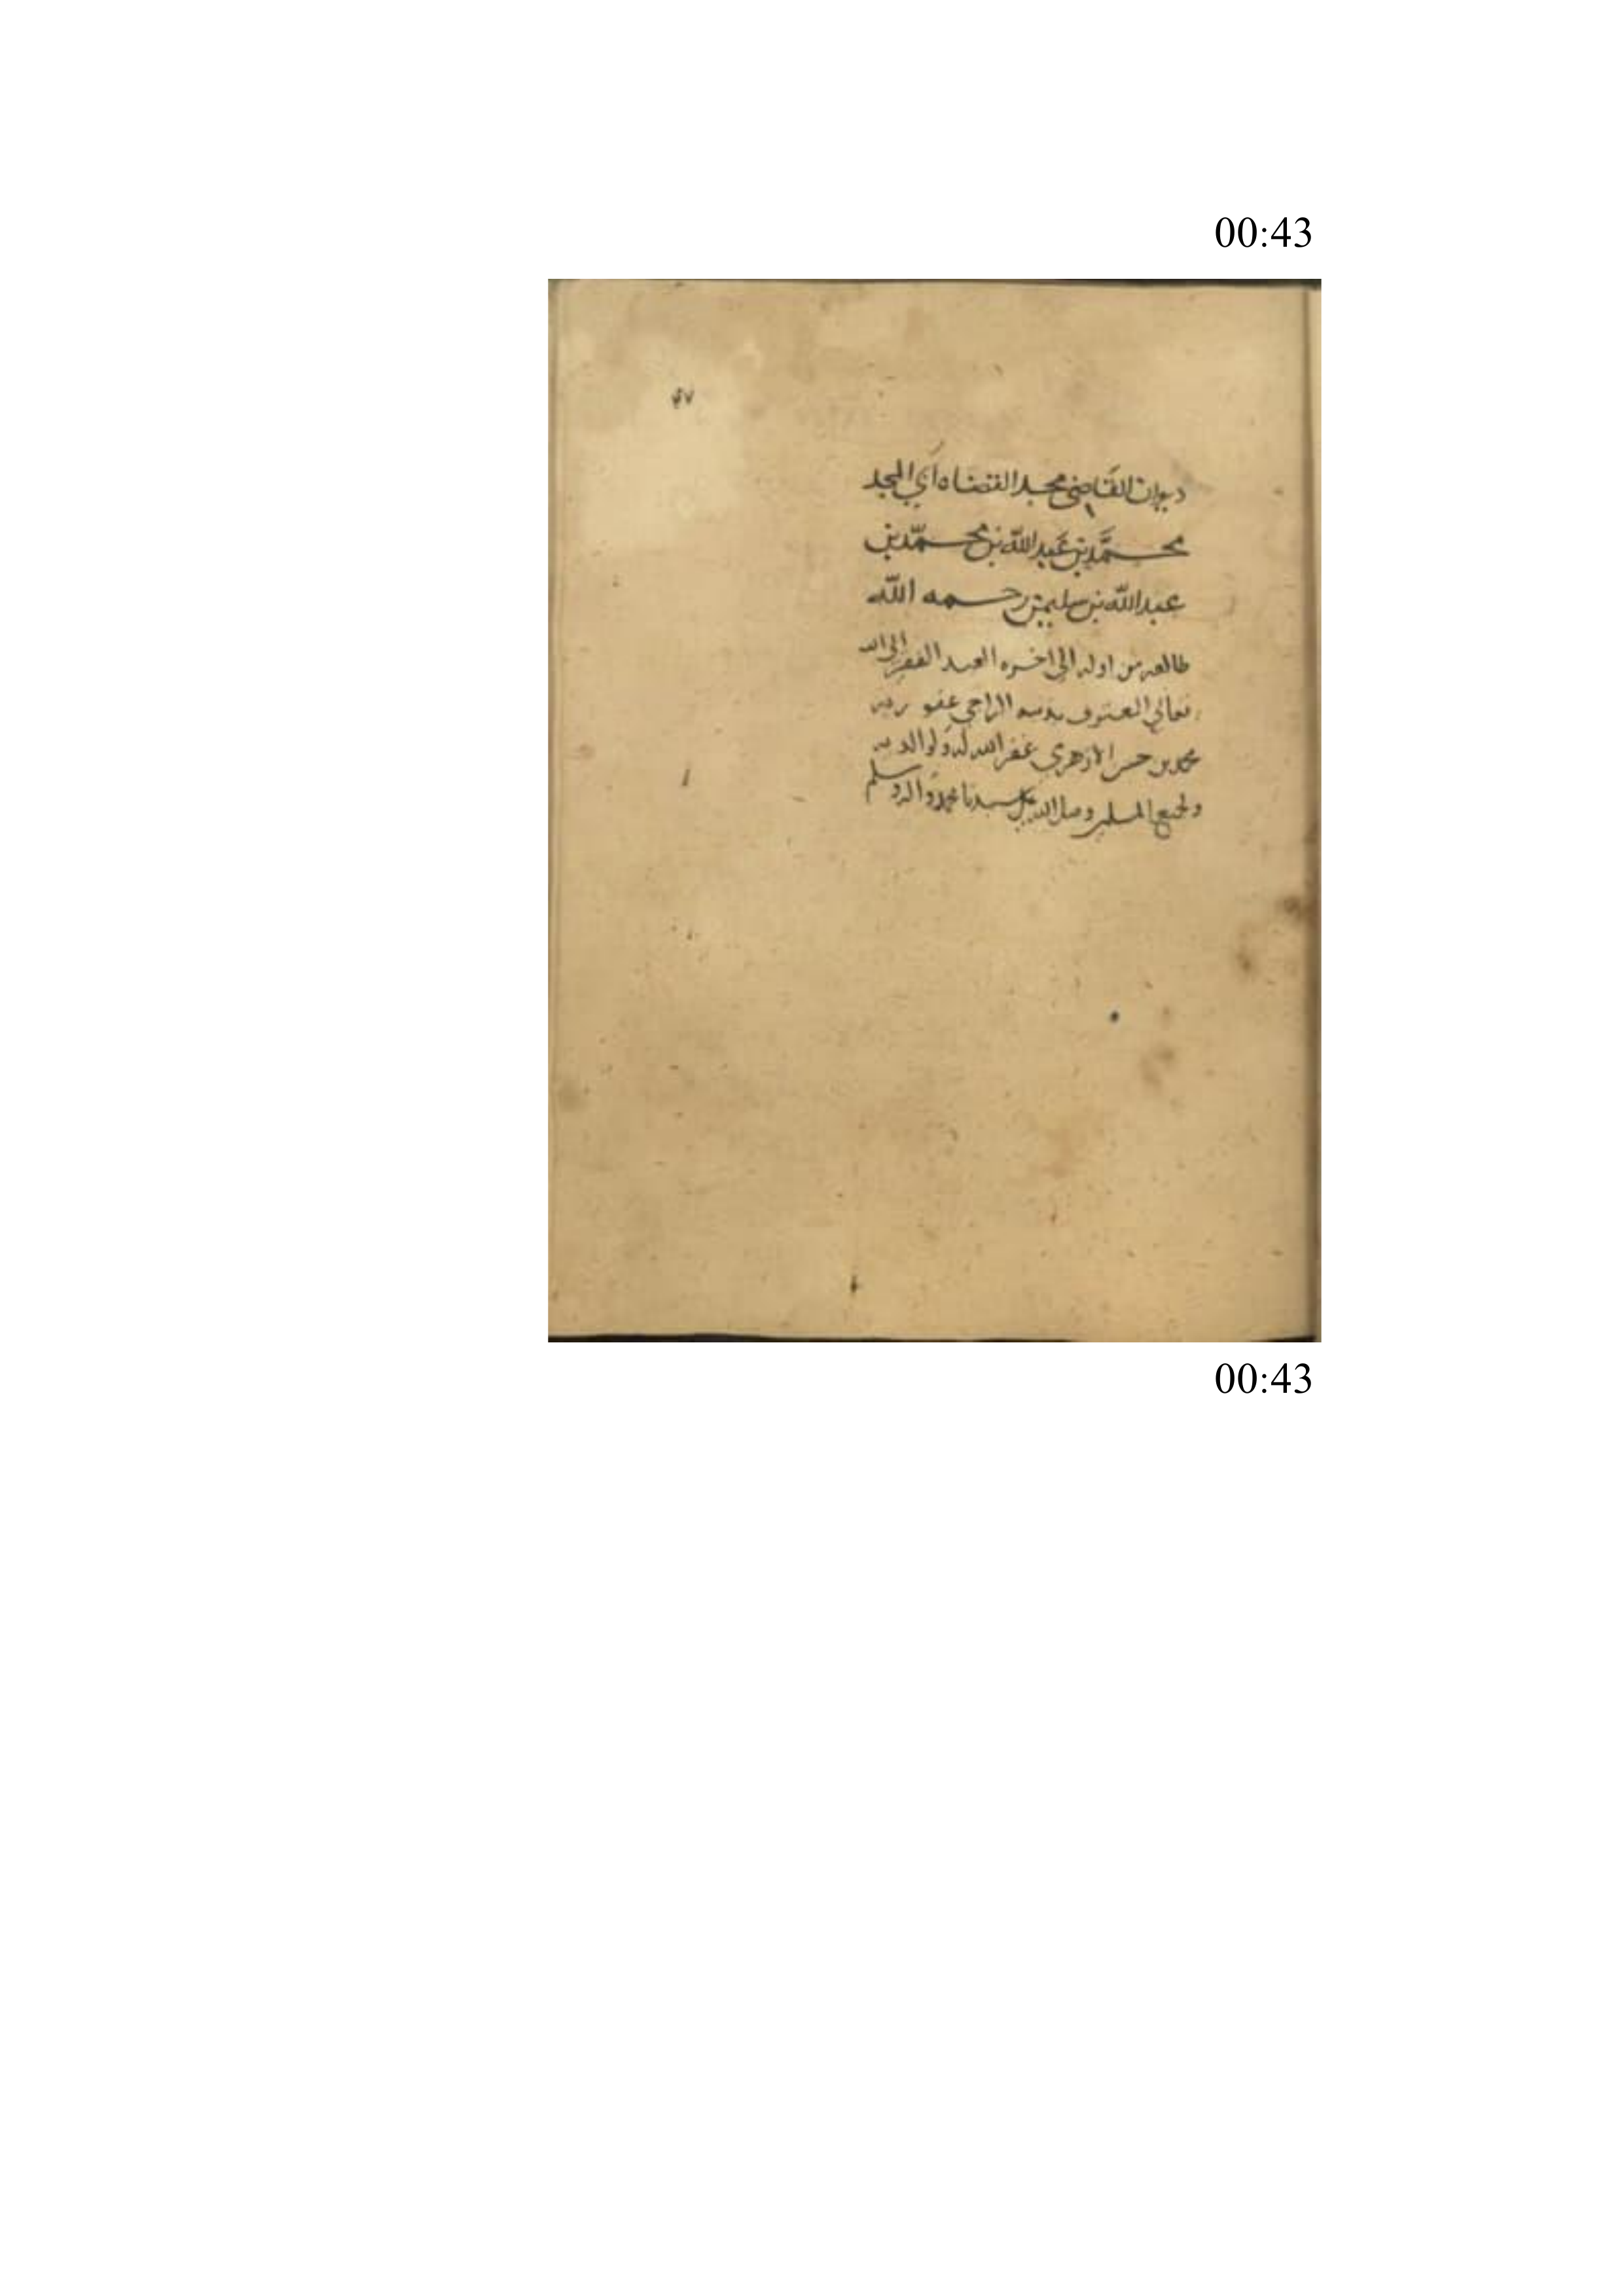 00:43
٤٧
ديوان القاضي مجد القضاه أبي المجد
محمّد بن عَبد الله بن محمّد بن
عبد الله بن سليمن رحمه الله
طالعه من اوله الى اخره العبد الفقير الى الله
تعالى المعترف بذنبه الراجي عفو ربه
محمد بن حسن الازهري غفر الله له ولوالديه
ولجميع المسلمين وصلى الله على سيدنا محمد واله وسلم
00:43